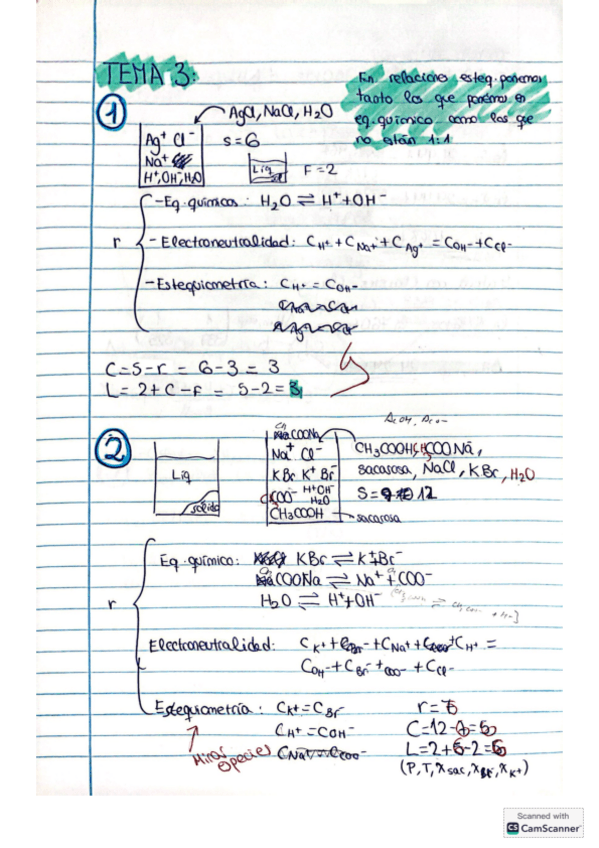 TEMA 3:
En relaciones esteq. ponemos
tanto los que ponemos en
eq. químico como los que
no están 1:1
1
AgCl, NaCl, H₂O
Ag⁺ Cl⁻
Na⁺
H⁺, OH⁻, H₂O
S = 6
Liq
F = 2
r
- Eq. químicos: H₂O ⇌ H⁺ + OH⁻
- Electroneutralidad: C_H⁺ + C_Na⁺ + C_Ag⁺ = C_OH⁻ + C_Cl⁻
- Estequiometría: C_H⁺ = C_OH⁻
C = S - r = 6 - 3 = 3
L = 2 + C - F = 5 - 2 = 3
2
AcOH, AcO⁻
Liq
sólido
COONa
Na⁺ Cl⁻
KBr K⁺ Br⁻
COO⁻ H⁺ OH⁻
H₂O
CH₃COOH
sacarosa
CH₃COOH, COONa,
sacarosa, NaCl, KBr, H₂O
S = 12
r
Eq. químico: KBr ⇌ K⁺ + Br⁻
COONa ⇌ Na⁺ + COO⁻
H₂O ⇌ H⁺ + OH⁻
Electroneutralidad: C_K⁺ + C_Na⁺ + C_H⁺ =
C_OH⁻ + C_Br⁻ + COO⁻ + C_Cl⁻
Estequiometría: C_K⁺ = C_Br⁻
C_H⁺ = C_OH⁻
Mirar
especies
r =
C = 12 -
L = 2 + 6 - 2 = 6
(P, T, x_sac, x_Br⁻, x_K⁺)
Scanned with
CS CamScanner